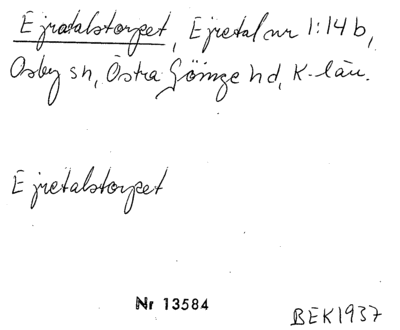 Ejretalstorpet, Ejretal nr 1:14b,
Osby sn, Östra Göinge hd, K-län.
Ejretalstorpet
Nr 13584
BEK1937